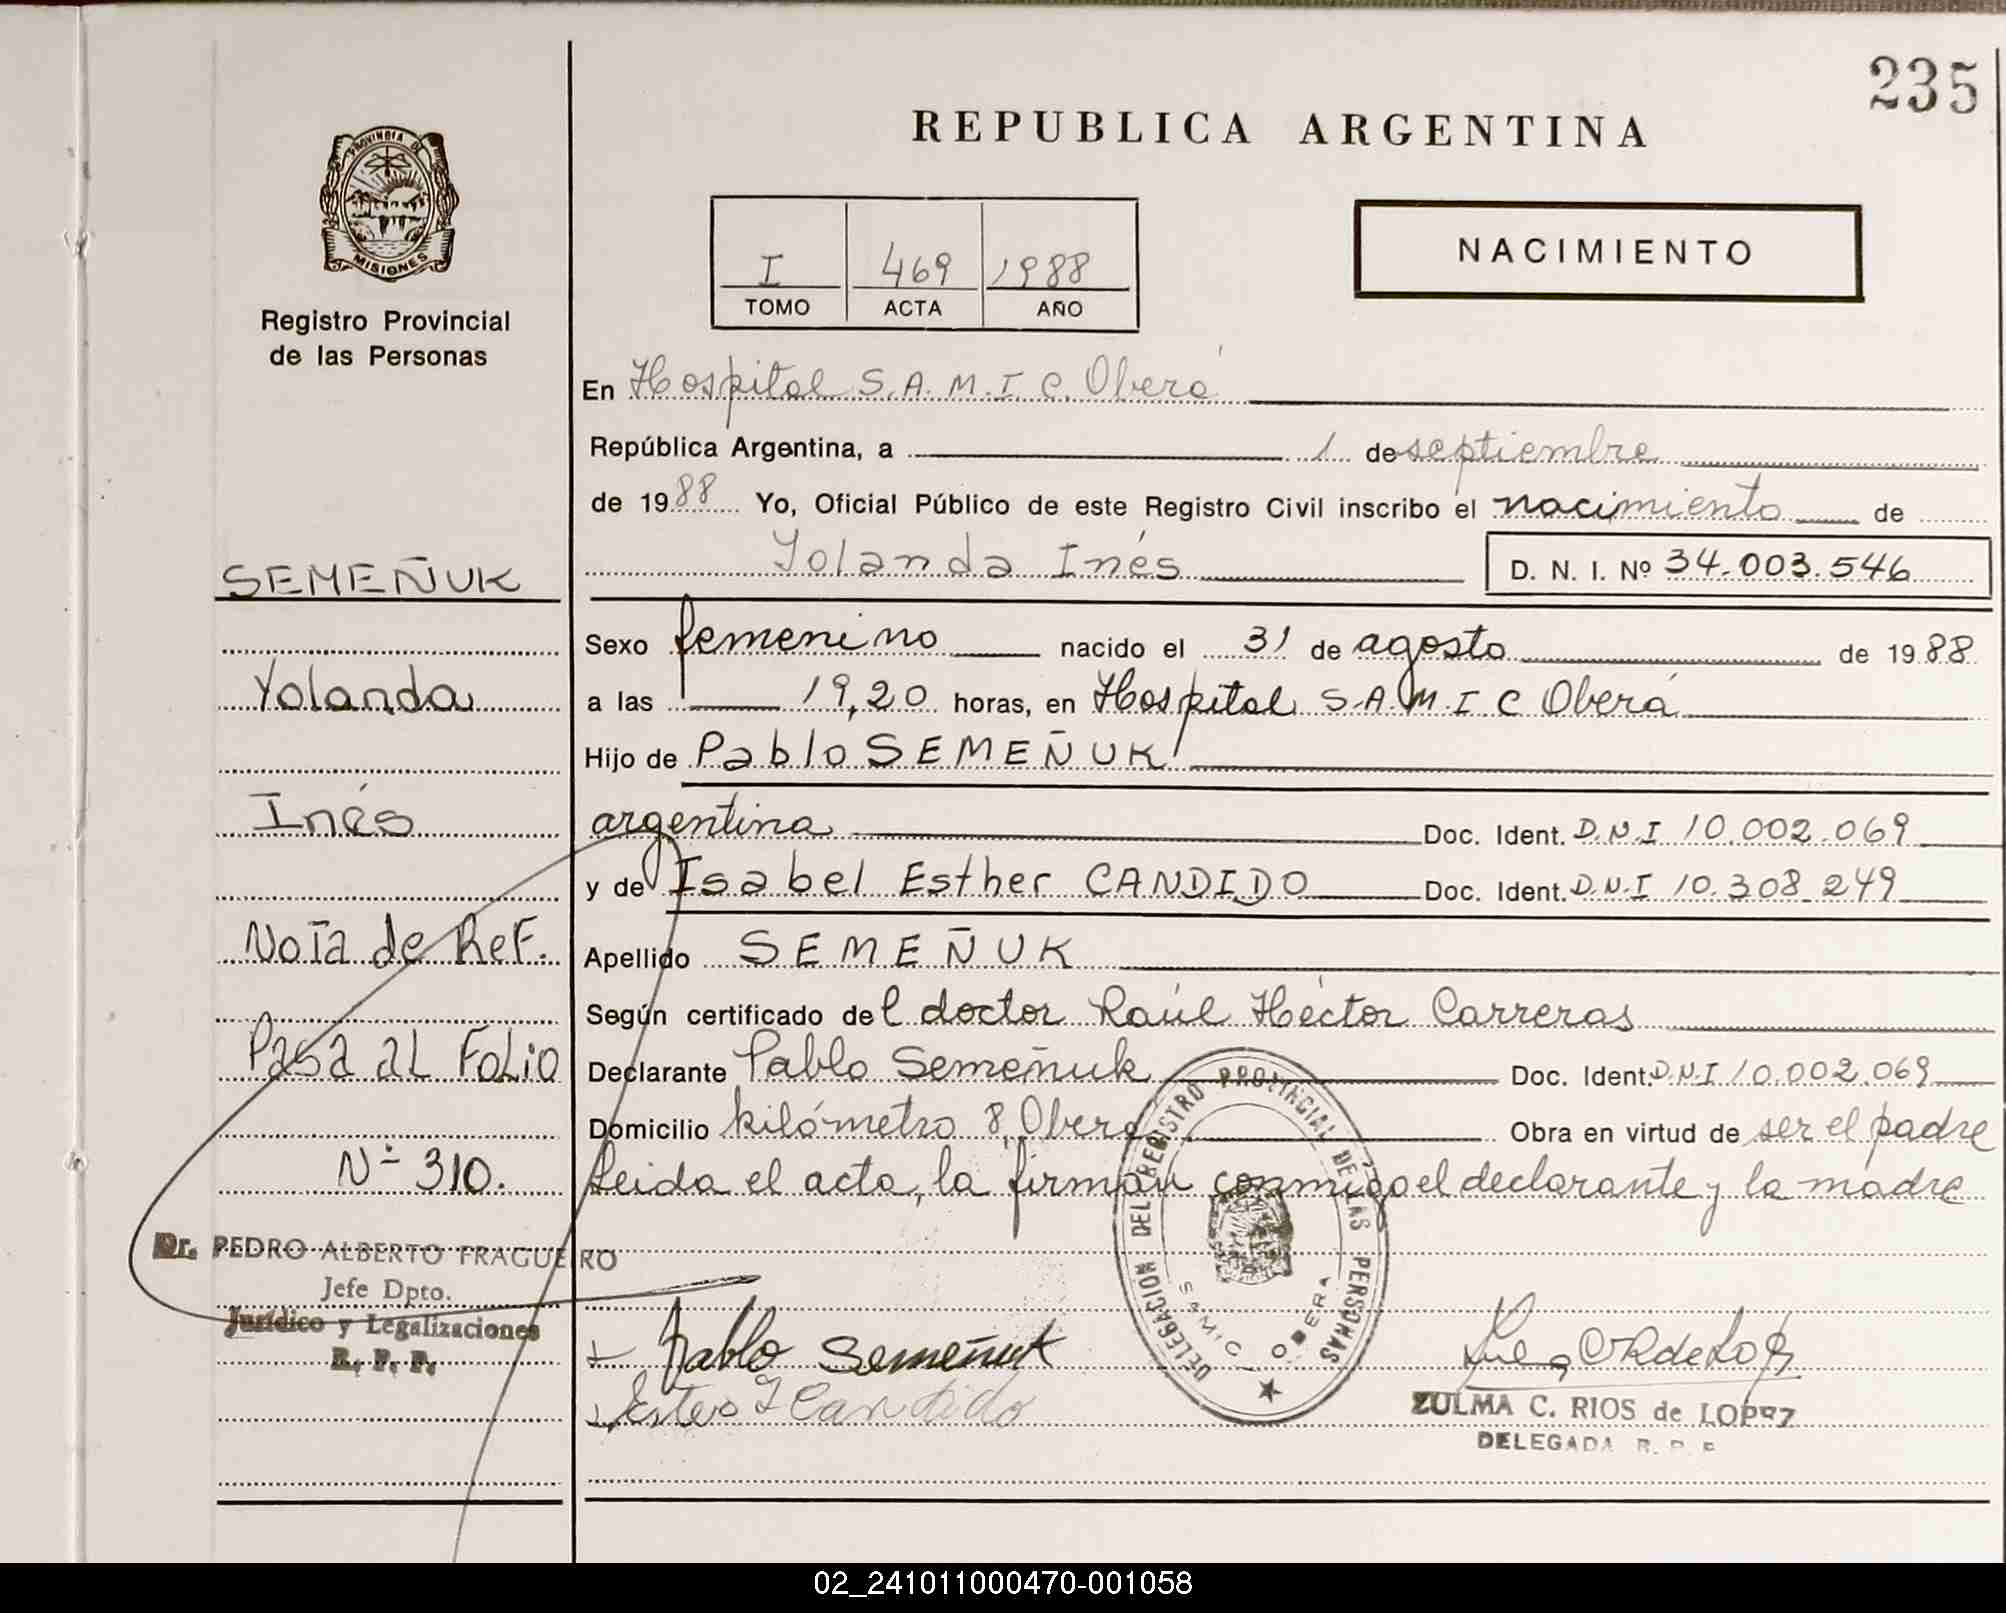 235
REPUBLICA ARGENTINA
PROVINCIA DE
MISIONES
Registro Provincial
de las Personas
I 469 1988
TOMO ACTA AÑO
NACIMIENTO
En Hospital S.A.M.I.C. Oberá
República Argentina, a 1 de septiembre
de 1988 Yo, Oficial Público de este Registro Civil inscribo el nacimiento de
Yolanda Inés D. N. I. Nº 34.003.546
SEMEÑUK
Yolanda
Inés
Nota de Ref.
Pasa al Folio
Nº 310.
Dr. PEDRO ALBERTO FRAGUEIRO
Jefe Dpto.
Jurídico y Legalizaciones
R. P. P.
Sexo femenino nacido el 31 de agosto de 1988
a las 19,20 horas, en Hospital S.A.M.I.C Oberá
Hijo de Pablo SEMEÑUK
argentina Doc. Ident. D.N.I 10.002.069
y de Isabel Esther CANDIDO Doc. Ident. D.N.I 10.308.249
Apellido SEMEÑUK
Según certificado del doctor Raúl Héctor Carreras
Declarante Pablo Semeñuk Doc. Ident. D.N.I 10.002.069
Domicilio kilómetro 8, Oberá Obra en virtud de ser el padre
Leida el acta, la firman conmigo el declarante y la madre
DELEGACION DEL REGISTRO PROVINCIAL DE LAS PERSONAS
SAMIC OBERA
Pablo Semeñuk
Candido
ZULMA C. RIOS de LOPEZ
DELEGADA R. P. P.
02_241011000470-001058